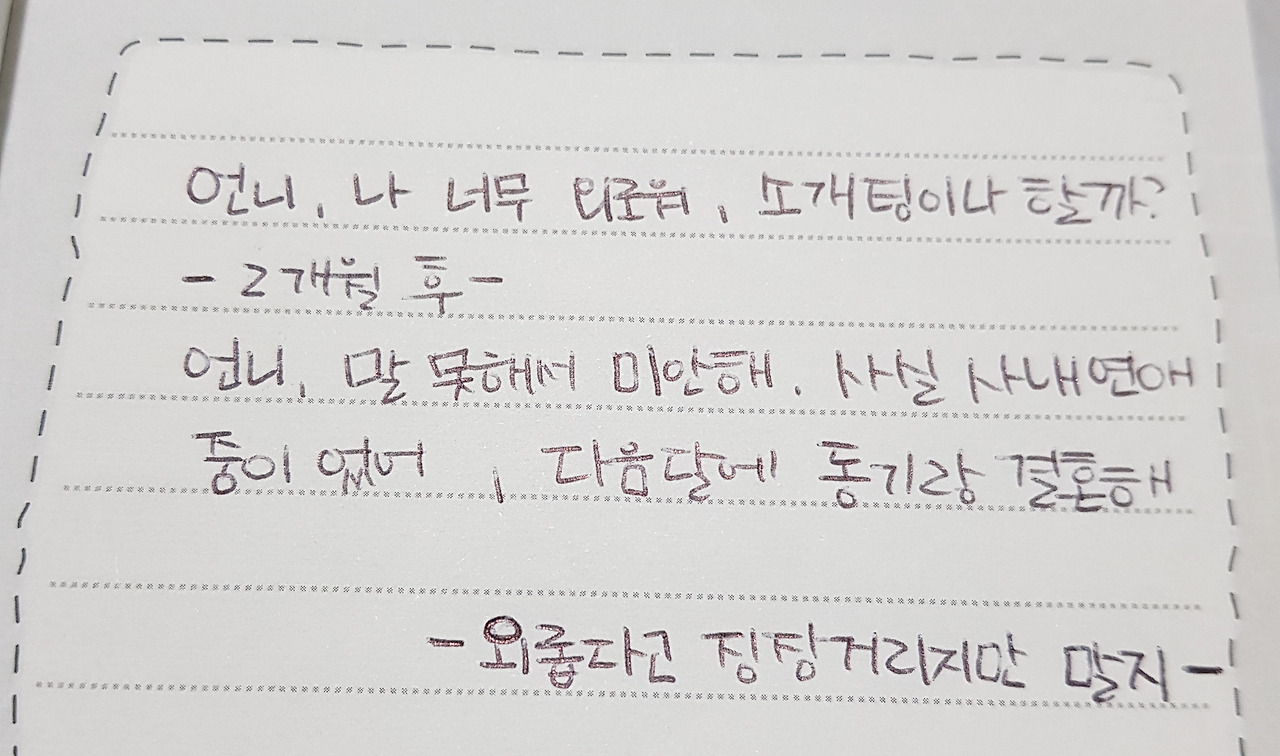 언니, 나 너무 외로워, 소개팅이나 할까?
- 2개월 후 -
언니, 말 못해서 미안해. 사실 사내연애
중이었어, 다음달에 동기랑 결혼해
- 외롭다고 징징거리지만 말지 -